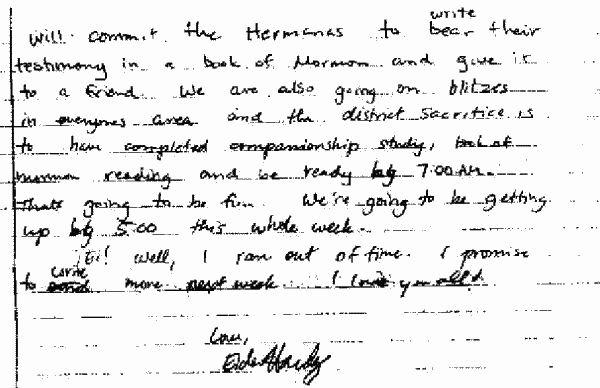 write
will commit the Hermanas to bear their
testimony in a book of Mormon and give it
to a friend. We are also going on blitzes
in everyones area and the district sacrifice is
to have completed companionship study, book of
mormon reading and be ready by 7:00 AM.
Thats going to be fun. We're going to be getting
up by 5:00 this whole week.
Well, I ran out of time. I promise
write
to send more next week. I love you all!
Love,
Elder Hardy